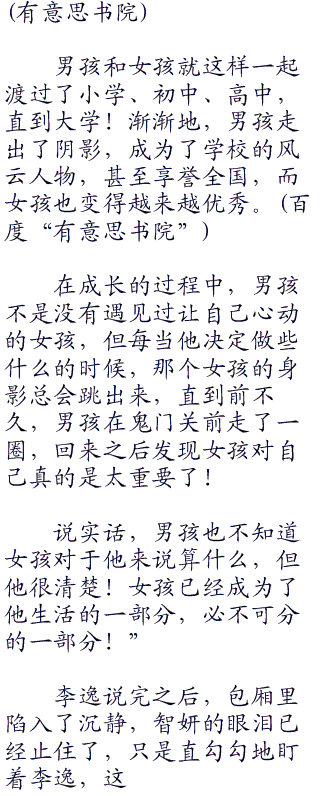 (有意思书院)
男孩和女孩就这样一起
渡过了小学、初中、高中，
直到大学！渐渐地，男孩走
出了阴影，成为了学校的风
云人物，甚至享誉全国，而
女孩也变得越来越优秀。(百
度“有意思书院”)
在成长的过程中，男孩
不是没有遇见过让自己心动
的女孩，但每当他决定做些
什么的时候，那个女孩的身
影总会跳出来，直到前不
久，男孩在鬼门关前走了一
圈，回来之后发现女孩对自
己真的是太重要了！
说实话，男孩也不知道
女孩对于他来说算什么，但
他很清楚！女孩已经成为了
他生活的一部分，必不可分
的一部分！”
李逸说完之后，包厢里
陷入了沉静，智妍的眼泪已
经止住了，只是直勾勾地盯
着李逸，这